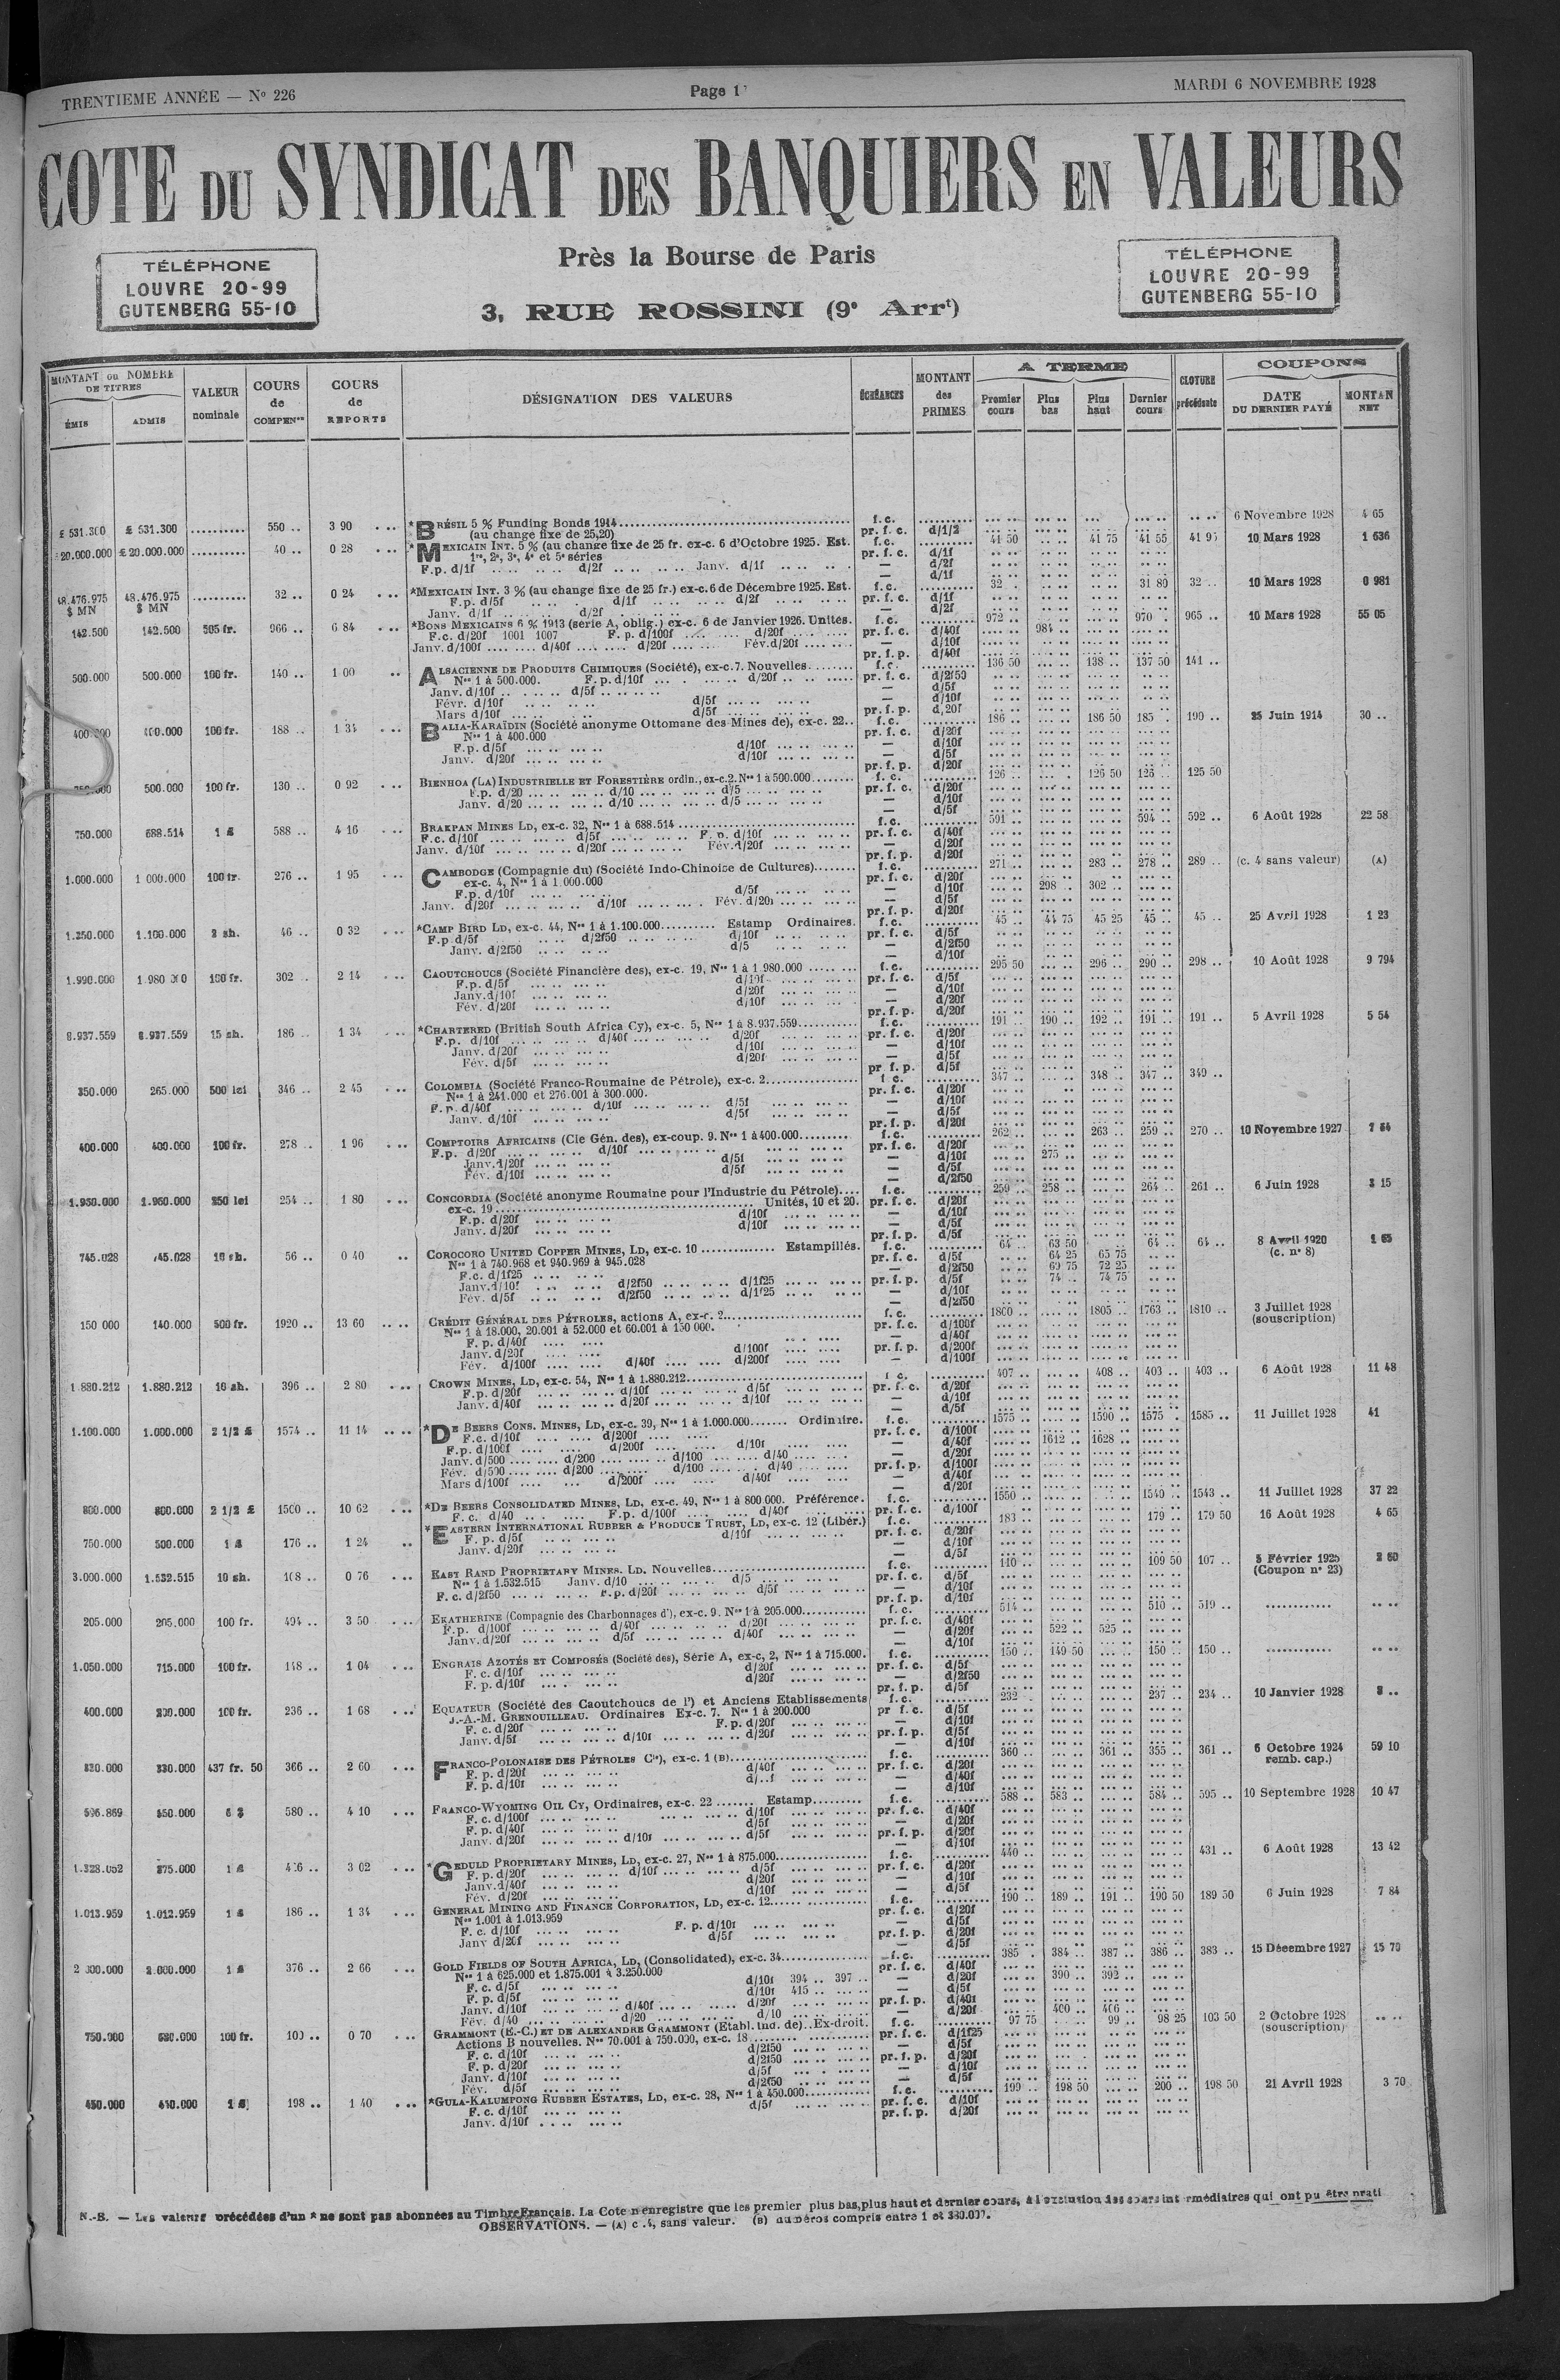 TRENTIEME ANNÉE — No 226
Page 1
MARDI 6 NOVEMBRE 1928
COTE DU SYNDICAT DES BANQUIERS EN VALEURS
Près la Bourse de Paris
3, RUE ROSSINI (9e Arrt)
TÉLÉPHONE
LOUVRE 20-99
GUTENBERG 55-10
TÉLÉPHONE
LOUVRE 20-99
GUTENBERG 55-10
MONTANT ou NOMBRE DE TITRES
ÉMIS
ADMIS
VALEUR nominale
COURS de COMPENon
COURS de REPORTS
DÉSIGNATION DES VALEURS
ÉCHÉANCES
MONTANT des PRIMES
A TERME
Premier cours
Plus bas
Plus haut
Dernier cours
CLOTURE précédente
COUPONS
DATE DU DERNIER PAYÉ
MONTAN NET
£ 531.300 £ 531.300 .......... 550 .. 3 90 *BRÉSIL 5 % Funding Bonds 1914 f.c. 6 Novembre 1928 4 65
(au change fixe de 25,20) pr. f. c. d/1/2
20.000.000 £ 20.000.000 .......... 40 .. 0 28 *MEXICAIN INT. 5 % (au change fixe de 25 fr. ex-c. 6 d'Octobre 1925. Est. f.c. 41 50 41 75 41 55 10 Mars 1928 1 636
1re, 2e, 3e, 4e et 5e séries pr. f. c. d/1f
F.p. d/1f d/2f Janv. d/1f — d/2f
— d/1f
48.476.975 $ MN 48.476.975 $ MN .......... 32 .. 0 24 *MEXICAIN INT. 3 % (au change fixe de 25 fr.) ex-c. 6 de Décembre 1925. Est. f.c. 32 .. 31 80 32 .. 10 Mars 1928 0 981
F.p. d/5f d/1f d/2f pr. f. c. d/1f
Janv. d/1f d/2f — d/2f
142.500 142.500 505 fr. 966 .. 6 84 *BONS MEXICAINS 6 % 1913 (série A, oblig.) ex-c. 6 de Janvier 1926. Unités. f.c. 972 .. 970 . 965 .. 10 Mars 1928 55 05
F.c. d/20f 1001 1007 F. p. d/100f d/20f pr. f. c. d/40f 984 ..
Janv. d/100f d/40f d/20f Fév. d/20f — d/10f
pr. f. p. d/40f
500.000 500.000 100 fr. 140 .. 1 00 ALSACIENNE DE PRODUITS CHIMIQUES (Société), ex-c. 7. Nouvelles f.c. 136 50 138 .. 137 50 141 ..
Nos 1 à 500.000. F. p. d/10f d/20f pr. f. c. d/2f50
Janv. d/10f d/5f — d/5f
Févr. d/10f d/5f — d/10f
Mars d/10f d/5f pr. f. p. d/20f
400.000 400.000 100 fr. 188 .. 1 34 BALIA-KARAÏDIN (Société anonyme Ottomane des Mines de), ex-c. 22 f.c. 186 .. 186 50 185 .. 190 .. 25 Juin 1914 30 ..
Nos 1 à 400.000 pr. f. c. d/20f
F.p. d/5f d/10f — d/10f
Janv. d/20f d/10f — d/5f
pr. f. p. d/20f
500.000 100 fr. 130 .. 0 92 BIENHOA (LA) INDUSTRIELLE ET FORESTIÈRE ordin., ex-c. 2. Nos 1 à 500.000 f.c. 126 .. 126 50 125 50
F.p. d/20 d/10 d/5 pr. f. c. d/20f
Janv. d/20 d/10 d/5 — d/10f
— d/5f
750.000 688.514 1 £ 588 .. 4 16 BRAKPAN MINES LD, ex-c. 32, Nos 1 à 688.514 f.c. 591 .. 594 .. 592 .. 6 Août 1928 22 58
F.c. d/10f d/5f F. p. d/10f pr. f. c. d/40f
Janv. d/10f d/20f Fév. d/20f — d/20f
pr. f. p. d/20f
1.000.000 1 000.000 100 fr. 276 .. 1 95 CAMBODGE (Compagnie du) (Société Indo-Chinoise de Cultures) f.c. 271 .. 283 .. 278 .. 289 .. (c. 4 sans valeur) (A)
ex-c. 4, Nos 1 à 1.000.000 pr. f. c. d/20f
F.p. d/10f d/5f — d/10f 298 .. 302 ..
Janv. d/20f d/10f Fév. d/20f — d/5f
pr. f. p. d/20f
1.250.000 1.100.000 2 sh. 46 .. 0 32 *CAMP BIRD LD, ex-c. 44, Nos 1 à 1.100.000 Estamp Ordinaires. f.c. 45 .. 44 75 45 25 45 .. 45 .. 25 Avril 1928 1 23
F.p d/5f d/2f50 d/10f pr. f. c. d/5f
Janv. d/2f50 d/5 — d/2f50
— d/10f
1.990.000 100 fr. 302 .. 2 14 CAOUTCHOUCS (Société Financière des), ex-c. 19, Nos 1 à 1 980.000 f.c. 295 50 296 .. 290 .. 298 .. 10 Août 1928 9 794
F.p. d/5f d/10f pr. f. c. d/5f
Janv. d/10f d/20f — d/10f
Fév. d/20f d/10f — d/20f
pr. f. p. d/20f
8.937.559 8.937.559 15 sh. 186 .. 1 34 *CHARTERED (British South Africa Cy), ex-c. 5, Nos 1 à 8.937.559 f.c. 191 .. 190 .. 192 .. 191 .. 191 .. 5 Avril 1928 5 54
F.p. d/10f d/40f d/20f pr. f. c. d/20f
Janv. d/20f d/10f — d/10f
Fév. d/5f d/20f — d/5f
pr f. p. d/5f
350.000 265.000 500 lei 346 .. 2 45 COLOMBIA (Société Franco-Roumaine de Pétrole), ex-c. 2 f.c. 347 .. 348 .. 347 .. 349 ..
Nos 1 à 241.000 et 276.001 à 300.000. pr. f. c. d/20f
F. p. d/40f d/10f d/5f — d/10f
Janv. d/10f d/5f — d/5f
pr. f. p. d/20f
400.000 400.000 100 fr. 278 .. 1 96 COMPTOIRS AFRICAINS (Cie Gén. des), ex-coup. 9. Nos 1 à 400.000 f.c. 262 .. 263 .. 259 .. 270 .. 10 Novembre 1927
F.p. d/20f d/10f pr. f. c. d/20f
Janv. d/20f d/5f — d/10f 275 ..
Fév. d/10f d/5f — d/5f
— d/2f50
1.960.000 250 lei 254 .. 1 80 CONCORDIA (Société anonyme Roumaine pour l'Industrie du Pétrole) f.c. 259 .. 258 .. 264 .. 261 .. 6 Juin 1928 3 15
ex-c. 19 Unités, 10 et 20. pr. f. c. d/20f
F.p. d/20f d/10f — d/10f
Janv. d/20f d/10f — d/5f
pr. f. p. d/5f
745.028 745.028 16 sh. 56 .. 0 40 COROCORO UNITED COPPER MINES, LD, ex-c. 10 Estampillés. f.c. 64 .. 63 50 64 .. 64 .. 8 Avril 1920 (c. no 8)
Nos 1 à 740.968 et 940.969 à 945.028 pr. f. c. d/5f 64 25 65 75
F.c. d/1f25 — d/2f50 69 75 72 25
Janv. d/10f d/2f50 d/1f25 pr. f. p. d/5f 74 .. 74 75
Fév. d/5f d/2f50 d/1f25 — d/10f
— d/2f50
150 000 140.000 500 fr. 1920 .. 13 60 CRÉDIT GÉNÉRAL DES PÉTROLES, actions A, ex-c. 2 f.c. 1800 .. 1805 .. 1763 .. 1810 .. 3 Juillet 1928 (souscription)
Nos 1 à 18.000, 20.001 à 52.000 et 60.001 à 150 000. pr. f. c. d/100f
F. p. d/40f — d/40f
Janv. d/20f d/100f pr. f. p. d/200f
Fév. d/100f d/40f d/200f — d/100f
1.880.212 1.880.212 10 sh. 396 .. 2 80 CROWN MINES, LD, ex-c. 54, Nos 1 à 1.880.212 f.c. 407 .. 408 .. 403 .. 403 .. 6 Août 1928 11 48
F.p. d/20f d/10f d/5f pr. f. c. d/20f
Janv. d/40f d/20f d/10f — d/10f
— d/5f
1.100.000 1.000.000 2 1/2 £ 1574 .. 11 14 *DE BEERS CONS. MINES, LD, ex-c. 39, Nos 1 à 1.000.000 Ordinaire. f.c. 1575 .. 1590 .. 1575 . 1585 .. 11 Juillet 1928 41
F.c. d/10f d/200f pr. f. c. d/100f
F.p. d/100f d/200f d/10f — d/40f 1612 .. 1628 ..
Janv. d/500 d/200 d/100 d/40 — d/20f
Fév. d/500 d/200 d/100 d/40 pr. f. p. d/100f
Mars d/100f d/200f d/40f — d/40f
— d/20f
800.000 800.000 2 1/2 £ 1500 .. 10 62 *DE BEERS CONSOLIDATED MINES, LD, ex-c. 49, Nos 1 à 800 000. Préférence. f.c. 1550 .. 1540 .. 1543 .. 11 Juillet 1928 37 22
F. c. d/40 F.p. d/100f d/40f pr. f. c. d/100f
750.000 500.000 1 £ 176 .. 1 24 *EASTERN INTERNATIONAL RUBBER & PRODUCE TRUST, LD, ex-c. 12 (Libér.) f.c. 183 .. 179 .. 179 50 16 Août 1928 4 65
F. p. d/5f d/10f pr. f. c. d/20f
Janv. d/20f — d/10f
— d/5f
3.000.000 1.532.515 10 sh. 108 .. 0 76 EAST RAND PROPRIETARY MINES, LD. Nouvelles f.c. 110 .. 109 50 107 .. (Coupon no 23) 2 60
Nos 1 à 1.532.515 Janv. d/10 d/5 pr. f. c. d/5f
F. c. d/2f50 F.p. d/20f d/5f — d/10f
pr. f. p. d/10f
205.000 205.000 100 fr. 494 .. 3 50 EKATHERINE (Compagnie des Charbonnages d'), ex-c. 9. Nos 1 à 205.000 f.c. 514 .. 510 .. 519 ..
F.p. d/100f d/40f d/20f pr. f. c. d/40f
Janv. d/20f d/5f d/40f — d/20f 522 .. 525 ..
— d/10f
1.050.000 715.000 100 fr. 148 .. 1 04 ENGRAIS AZOTÉS ET COMPOSÉS (Société des), Série A, ex-c. 2, Nos 1 à 715.000. f.c. 150 .. 149 50 150 .. 150 ..
F. c. d/10f d/20f pr. f. c. d/5f
F. p. d/10f d/20f — d/2f50
pr. f. p. d/5f
400.000 200.000 100 fr. 236 .. 1 68 EQUATEUR (Société des Caoutchoucs de l') et Anciens Etablissements f.c. 232 .. 237 .. 234 .. 10 Janvier 1928 8 ..
J.-A.-M. GRENOUILLEAU. Ordinaires Ex-c. 7. Nos 1 à 200.000 pr f. c. d/5f
F. c. d/20f F.p. d/20f — d/10f
Janv. d/5f d/10f d/20f pr. f. p. d/5f
— d/10f
330.000 437 fr. 50 366 .. 2 60 FRANCO-POLONAISE DES PÉTROLES Cie), ex-c. 1 (B) f.c. 360 .. 361 .. 355 .. 361 .. 6 Octobre 1924 remb. cap.) 59 10
F. p. d/20f d/40f pr. f. c. d/20f
F. p. d/10f — d/40f
— d/10f
596.869 550.000 580 .. 4 10 FRANCO-WYOMING OIL CY, Ordinaires, ex-c. 22 Estamp f.c. 588 .. 583 .. 584 .. 595 .. 10 Septembre 1928 10 47
F. c. d/100f d/10f pr. f. c. d/40f
F. p. d/40f d/5f — d/20f
Janv. d/20f d/10f d/5f pr. f. p. d/20f
— d/10f
1.328.052 875.000 1 £ 3 02 *GEDULD PROPRIETARY MINES, LD, ex-c. 27, Nos 1 à 875.000 f.c. 440 .. 431 .. 6 Août 1928 13 42
F. p. d/20f d/10f d/5f pr. f. c. d/20f
Janv. d/40f d/20f — d/10f
Fév. d/20f d/10f — d/5f
1.013.959 1.012.959 1 £ 186 .. 1 34 GENERAL MINING AND FINANCE CORPORATION, LD, ex-c. 12 f.c. 190 .. 189 .. 191 .. 190 50 189 50 6 Juin 1928 7 84
Nos 1.001 à 1.013.959 pr. f. c. d/20f
F. c. d/10f F. p. d/10f — d/5f
Janv d/20f d/5f pr. f. p. d/20f
— d/5f
2.000.000 1 £ 376 .. 2 66 GOLD FIELDS OF SOUTH AFRICA, LD, (Consolidated), ex-c. 34 f.c. 385 . 384 .. 387 .. 386 .. 383 .. 15 Décembre 1927 15 70
Nos 1 à 625.000 et 1.875.001 à 3.250.000 pr. f. c. d/40f
F. c. d/5f d/10f 394 .. 397 .. — d/20f 390 .. 392 ..
F. p. d/5f d/10f 415 .. — d/5f
Janv. d/10f d/40f d/20f pr. f. p. d/40f
Fév. d/40 d/20 d/10 — d/20f 400 .. 406 ..
750.000 680.000 100 fr. 100 .. 0 70 GRAMMONT (E.-C.) ET DE ALEXANDRE GRAMMONT (Etabl. Ind. de). Ex-droit. f.c. 97 75 99 .. 98 25 103 50 2 Octobre 1928 (souscription)
Actions B nouvelles. Nos 70.001 à 750.000, ex-c. 18 pr. f. c. d/1f25
F. c. d/10f d/2f50 — d/5f
F. p. d/20f d/2f50 pr. f. p. d/20f
Janv. d/10f d/5f — d/10f
Fév. d/5f d/2f50 — d/5f
450.000 1 £ 198 .. 1 40 *GULA-KALUMPONG RUBBER ESTATES, LD, ex-c. 28, Nos 1 à 450.000 f.c. 199 .. 198 50 200 .. 198 50 21 Avril 1928 3 70
F. c. d/10f d/5f pr. f. c. d/10f
Janv. d/10f pr. f. p. d/20f
N.-B. — Les valeurs précédées d'un * ne sont pas abonnées au Timbre Français. La Cote n'enregistre que les premier plus bas, plus haut et dernier cours, à l'exclusion des cours int rmédiaires qui ont pu être prati
OBSERVATIONS. — (A) c .4, sans valeur. (B) numéros compris entre 1 et 330.000.